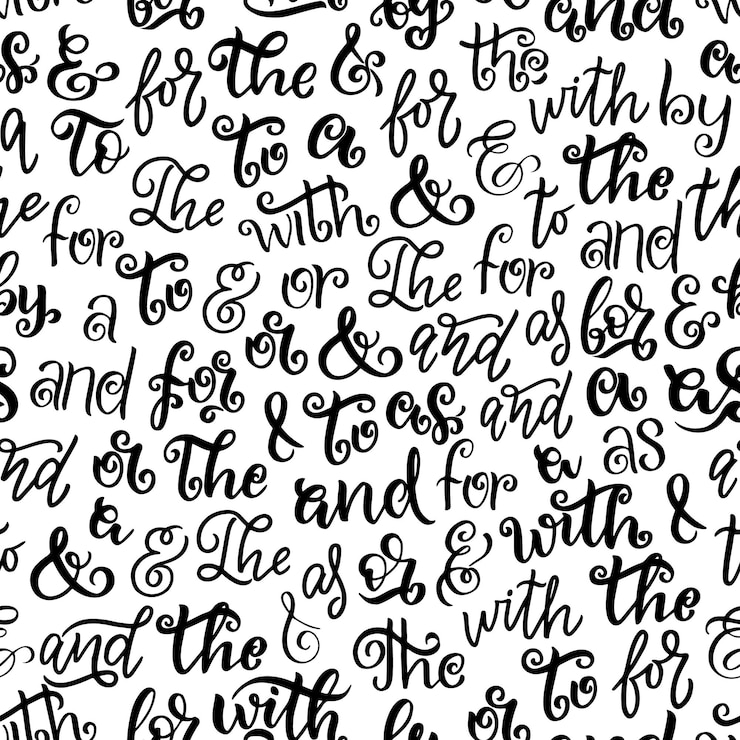 by and
s & for the & the a
for with by
a To to a & the
The with & to and th
for to & or The for
by a
or & and as for &
s and for & to as and a as
nd or The and for a as
a with &
to & & The as or &
and the & The with the
to for
with for with by or to and